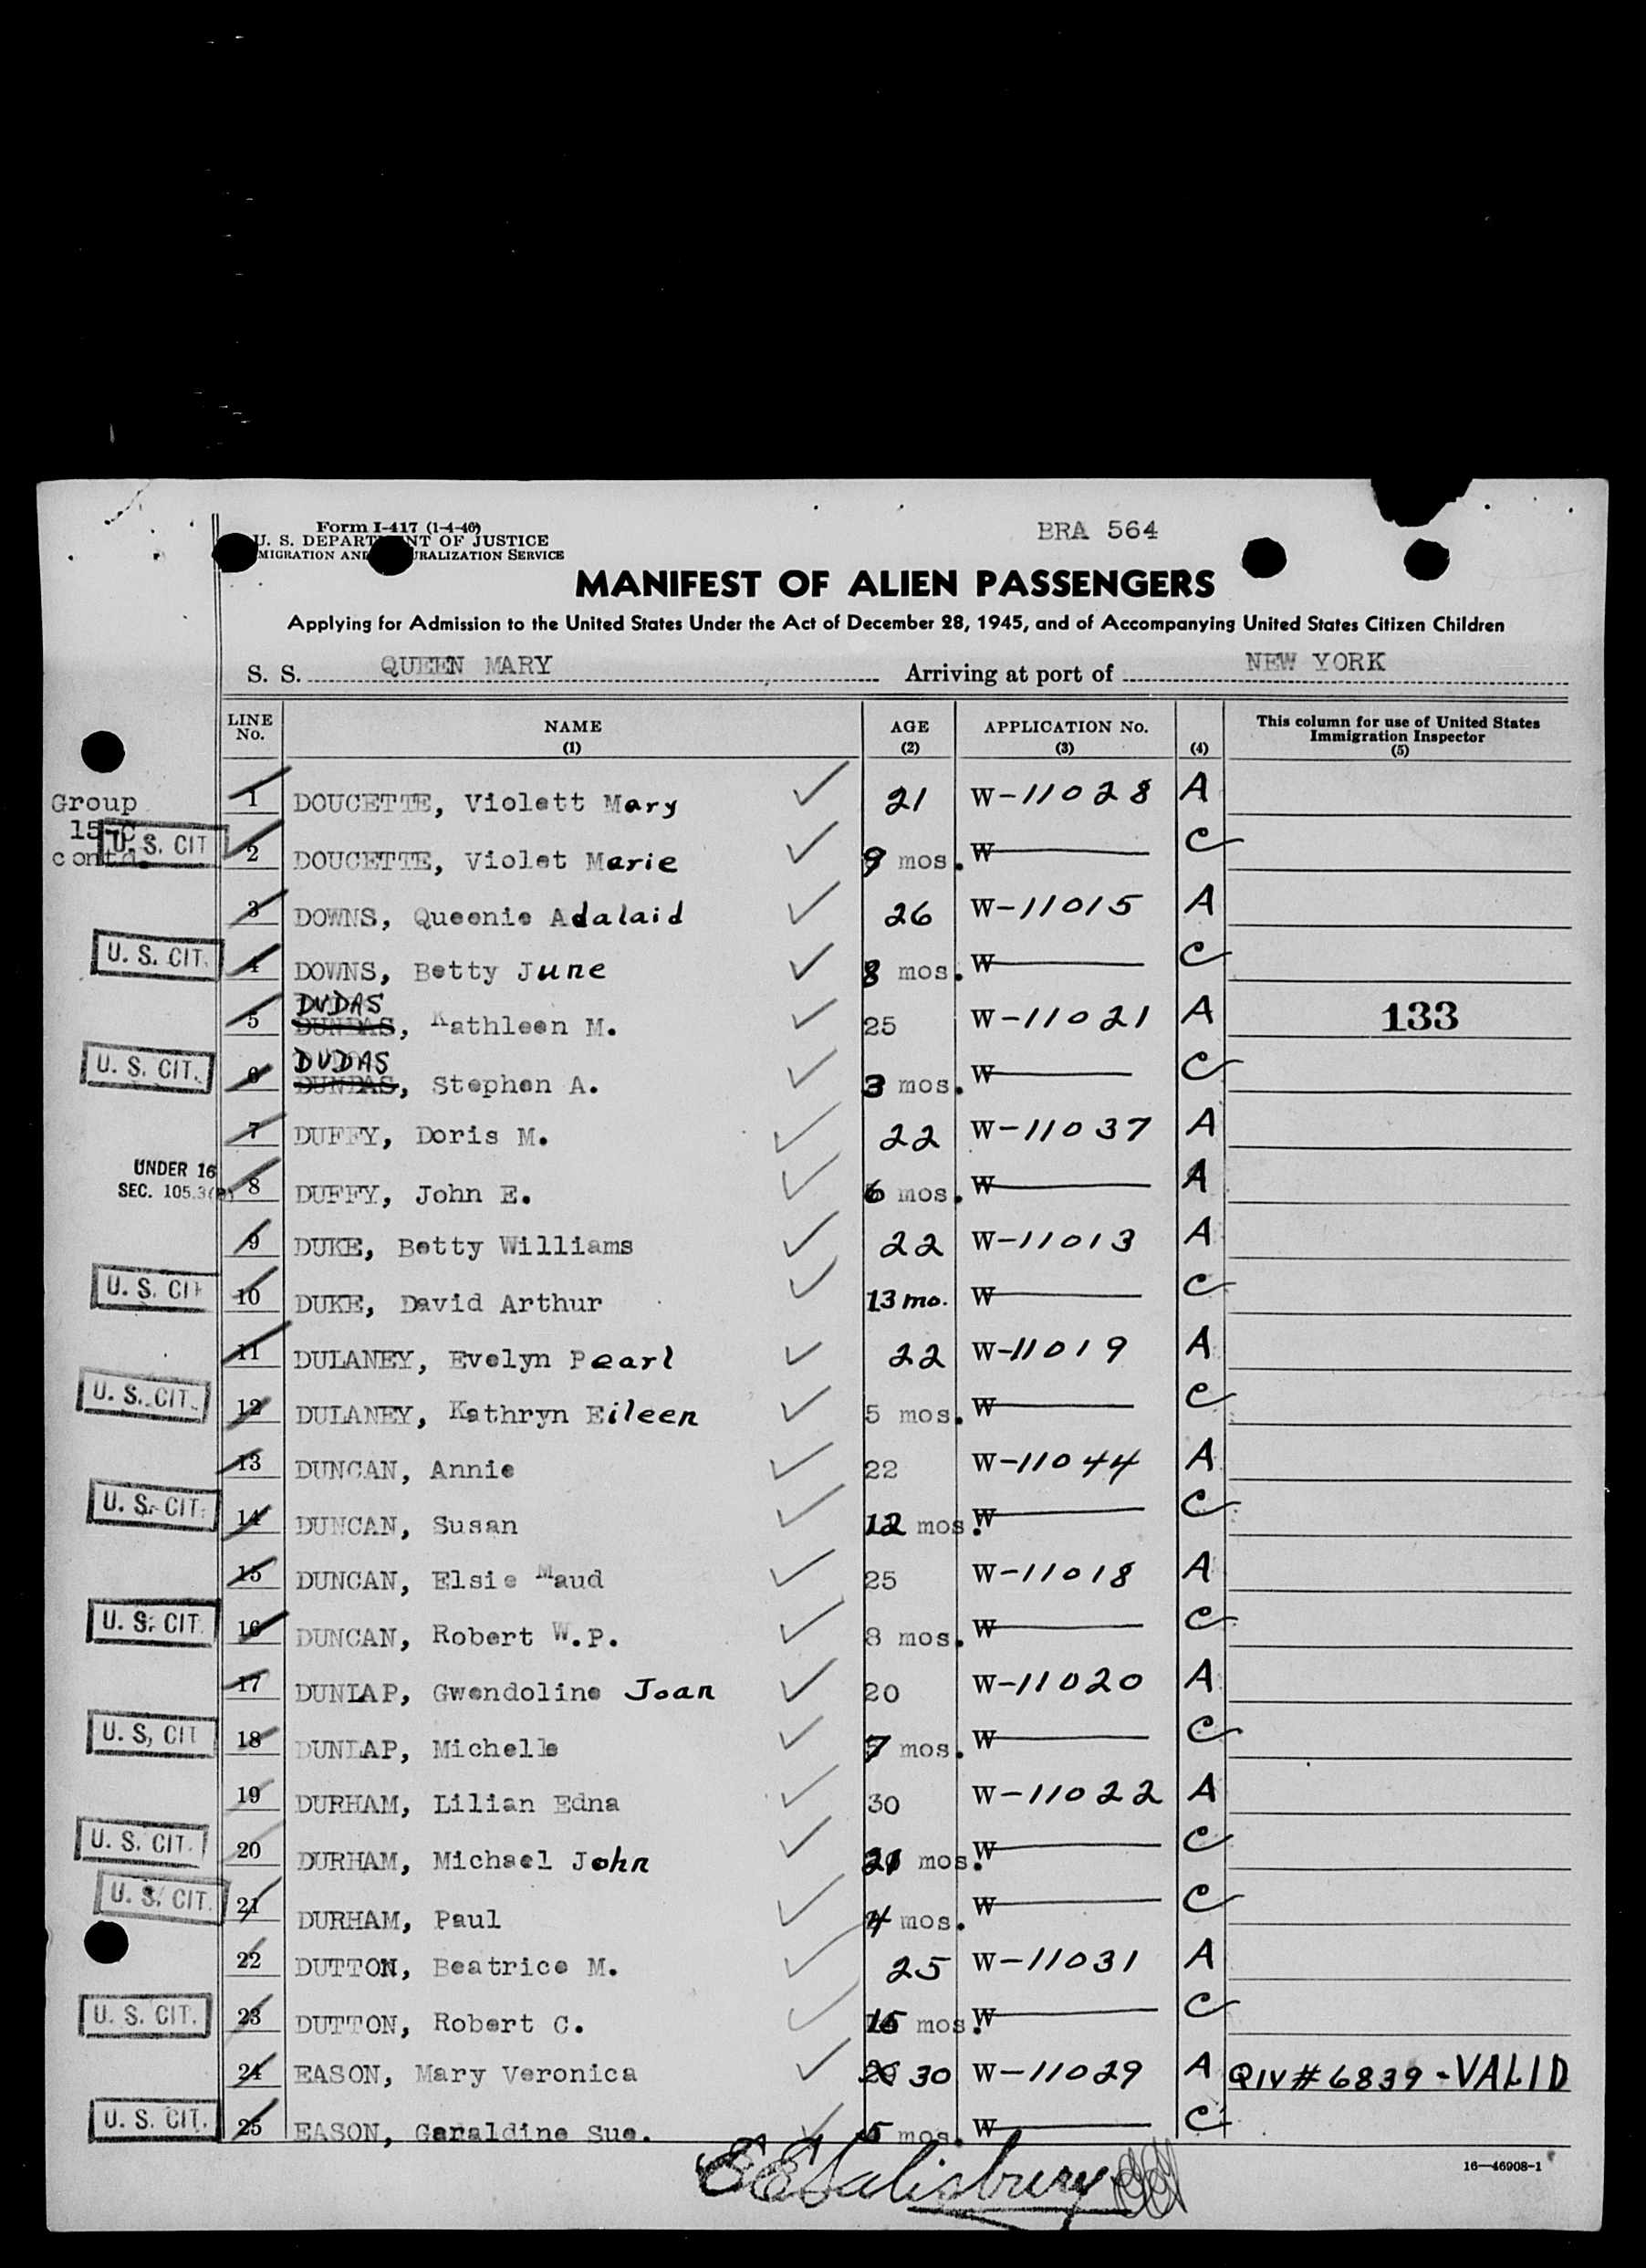 Form I-417 (1-4-46)
U. S. DEPARTMENT OF JUSTICE
IMMIGRATION AND NATURALIZATION SERVICE
BRA 564
MANIFEST OF ALIEN PASSENGERS
Applying for Admission to the United States Under the Act of December 28, 1945, and of Accompanying United States Citizen Children
S. S. QUEEN MARY Arriving at port of NEW YORK
LINE No. NAME (1) AGE (2) APPLICATION No. (3) (4) This column for use of United States Immigration Inspector (5)
Group 15-C contd.
1 DOUCETTE, Violett Mary 21 W-11028 A
U. S. CIT 2 DOUCETTE, Violet Marie 9 mos. W C
3 DOWNS, Queenie Adalaid 26 W-11015 A
U. S. CIT. 4 DOWNS, Betty June 8 mos. W C
5 DUDAS DUNDAS, Kathleen M. 25 W-11021 A 133
U. S. CIT. 6 DUDAS DUNDAS, Stephen A. 3 mos. W C
7 DUFFY, Doris M. 22 W-11037 A
UNDER 16
SEC. 105.3 8 DUFFY, John E. 6 mos. W A
9 DUKE, Betty Williams 22 W-11013 A
U. S. CIT 10 DUKE, David Arthur 13 mo. W C
11 DULANEY, Evelyn Pearl 22 W-11019 A
U. S. CIT. 12 DULANEY, Kathryn Eileen 5 mos. W C
13 DUNCAN, Annie 22 W-11044 A
U. S. CIT. 14 DUNCAN, Susan 12 mos. W C
15 DUNCAN, Elsie Maud 25 W-11018 A
U. S. CIT. 16 DUNCAN, Robert W.P. 8 mos. W C
17 DUNLAP, Gwendoline Joan 20 W-11020 A
U. S. CIT 18 DUNLAP, Michelle 7 mos. W C
19 DURHAM, Lilian Edna 30 W-11022 A
U. S. CIT. 20 DURHAM, Michael John 21 mos. W C
U. S. CIT. 21 DURHAM, Paul 4 mos. W C
22 DUTTON, Beatrice M. 25 W-11031 A
U. S. CIT. 23 DUTTON, Robert C. 15 mos. W C
24 EASON, Mary Veronica 30 W-11029 A QIV # 6839 - VALID
U. S. CIT. 25 EASON, Geraldine Sue. 5 mos. W C
EESalisbury
16—46908-1